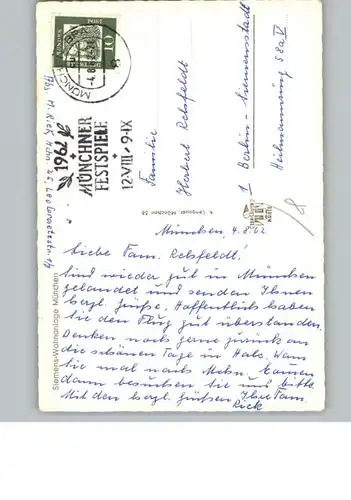 MÜNCHEN
10
1962
MÜNCHNER
FESTSPIELE
12·VIII·9·IX
Abs. M. Rick, Mchn. 25,
Familie
Herbert Rehsfeldt
1 Berlin-Siemensstadt
Heilmannring 58a V
Siemens-Wohnanlage München
München, 4.8.62
Liebe Fam. Rehsfeldt!
Sind wieder gut in München
gelandet und senden Ihnen
herzl. Grüße. Hoffentlich haben
Sie den Flug gut überstanden.
Denken noch gerne zurück an
die schönen Tage in Wenn
Sie mal nach Mchn. kommen
dann besuchen Sie uns bitte
Mit den herzl. Grüßen Ihre Fam.
Rick